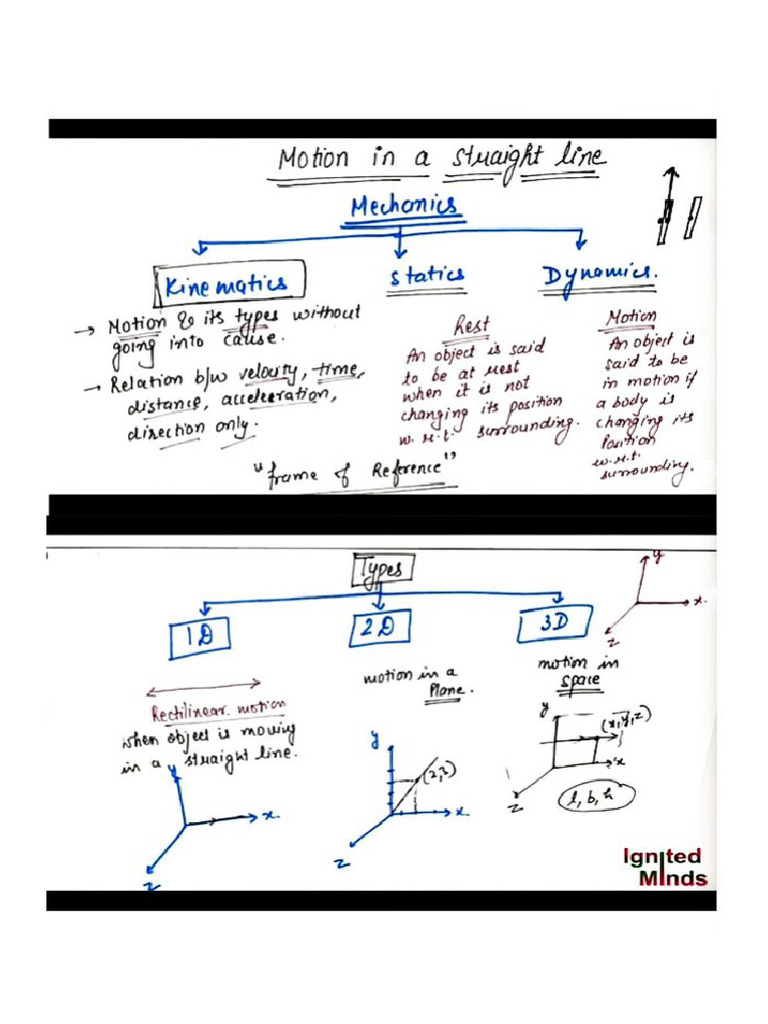 Motion in a straight line
Mechanics
Kinematics
→ Motion & its types without
going into cause.
→ Relation b/w velocity, time,
distance, acceleration,
direction only.
Statics
Rest
An object is said
to be at rest
when it is not
changing its position
w.r.t. surrounding.
Dynamics.
Motion
An object is
said to be
in motion if
a body is
changing its
Position
w.r.t.
surrounding.
"frame of Reference"
Types
y
x
z
1D
Rectilinear motion
when object is moving
in a straight line.
y
x
z
2D
motion in a
Plane.
y
(2,3)
x
z
3D
motion in
space
y
(x,y,z)
x
z
l, b, h
Ignited
Minds